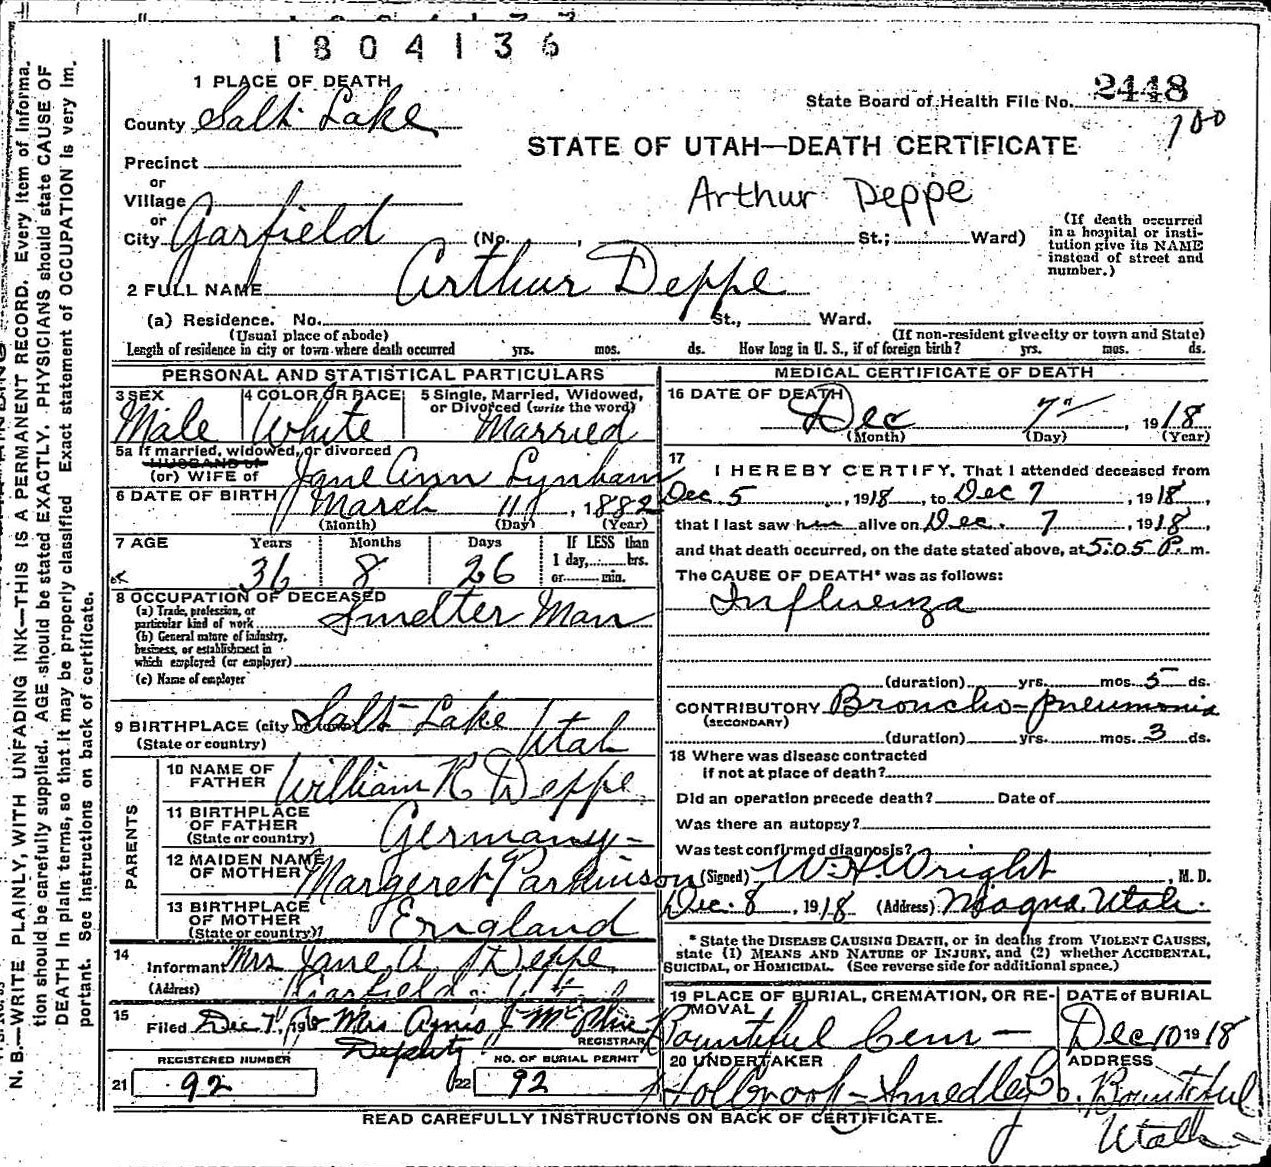 1804136
1 PLACE OF DEATH
State Board of Health File No. 2448
County Salt Lake
100
STATE OF UTAH—DEATH CERTIFICATE
Precinct
or
Village
Arthur Deppe
or
City Garfield (No. , St.; Ward)
(If death occurred in a hospital or institution give its NAME instead of street and number.)
2 FULL NAME Arthur Deppe
(a) Residence. No. St., Ward.
(Usual place of abode) (If non-resident give city or town and State)
Length of residence in city or town where death occurred yrs. mos. ds. How long in U. S., if of foreign birth? yrs. mos. ds.
PERSONAL AND STATISTICAL PARTICULARS
3 SEX 4 COLOR OR RACE 5 Single, Married, Widowed, or Divorced (write the word)
Male White Married
5a If married, widowed, or divorced
HUSBAND of
(or) WIFE of Jane Ann Lynham
6 DATE OF BIRTH March 11, 1882
(Month) (Day) (Year)
7 AGE Years Months Days If LESS than
1 day, hrs.
or min.
36 8 26
8 OCCUPATION OF DECEASED
(a) Trade, profession, or
particular kind of work Smelter Man
(b) General nature of industry,
business, or establishment in
which employed (or employer)
(c) Name of employer
9 BIRTHPLACE (city Salt Lake
(State or country) Utah
PARENTS
10 NAME OF
FATHER William R Deppe
11 BIRTHPLACE
OF FATHER
(State or country) Germany-
12 MAIDEN NAME
OF MOTHER Margeret Parkinson
13 BIRTHPLACE
OF MOTHER
(State or country)? England
14
Informant Mrs Jane A Deppe
(Address) Garfield, Utah
15
Filed Dec 7, 1918 Mrs
REGISTRAR
Deputy
REGISTERED NUMBER NO. OF BURIAL PERMIT
21 92 22 92
MEDICAL CERTIFICATE OF DEATH
16 DATE OF DEATH
Dec 7th 1918
(Month) (Day) (Year)
17
I HEREBY CERTIFY, That I attended deceased from
Dec 5, 1918, to Dec 7, 1918,
that I last saw him alive on Dec. 7, 1918,
and that death occurred, on the date stated above, at 5:05 P. m.
The CAUSE OF DEATH* was as follows:
Influenza
(duration) yrs. mos. 5 ds.
CONTRIBUTORY Broncho-pneumonia
(SECONDARY)
(duration) yrs. mos. 3 ds.
18 Where was disease contracted
if not at place of death?
Did an operation precede death? Date of
Was there an autopsy?
Was test confirmed diagnosis?
(Signed) W.H. Wright, M. D.
Dec. 8, 1918 (Address) Magna, Utah.
* State the DISEASE CAUSING DEATH, or in deaths from VIOLENT CAUSES,
state (1) MEANS AND NATURE OF INJURY, and (2) whether ACCIDENTAL,
SUICIDAL, or HOMICIDAL. (See reverse side for additional space.)
19 PLACE OF BURIAL, CREMATION, OR REMOVAL DATE of BURIAL
Bountiful Cem — Dec 10 1918
20 UNDERTAKER ADDRESS
Holbrook-Smedley Co. Bountiful Utah
READ CAREFULLY INSTRUCTIONS ON BACK OF CERTIFICATE.
N. B.—WRITE PLAINLY, WITH UNFADING INK—THIS IS A PERMANENT RECORD. Every item of informa-
tion should be carefully supplied. AGE should be stated EXACTLY. PHYSICIANS should state CAUSE OF
DEATH in plain terms, so that it may be properly classified. Exact statement of OCCUPATION is very im-
portant. See instructions on back of certificate.